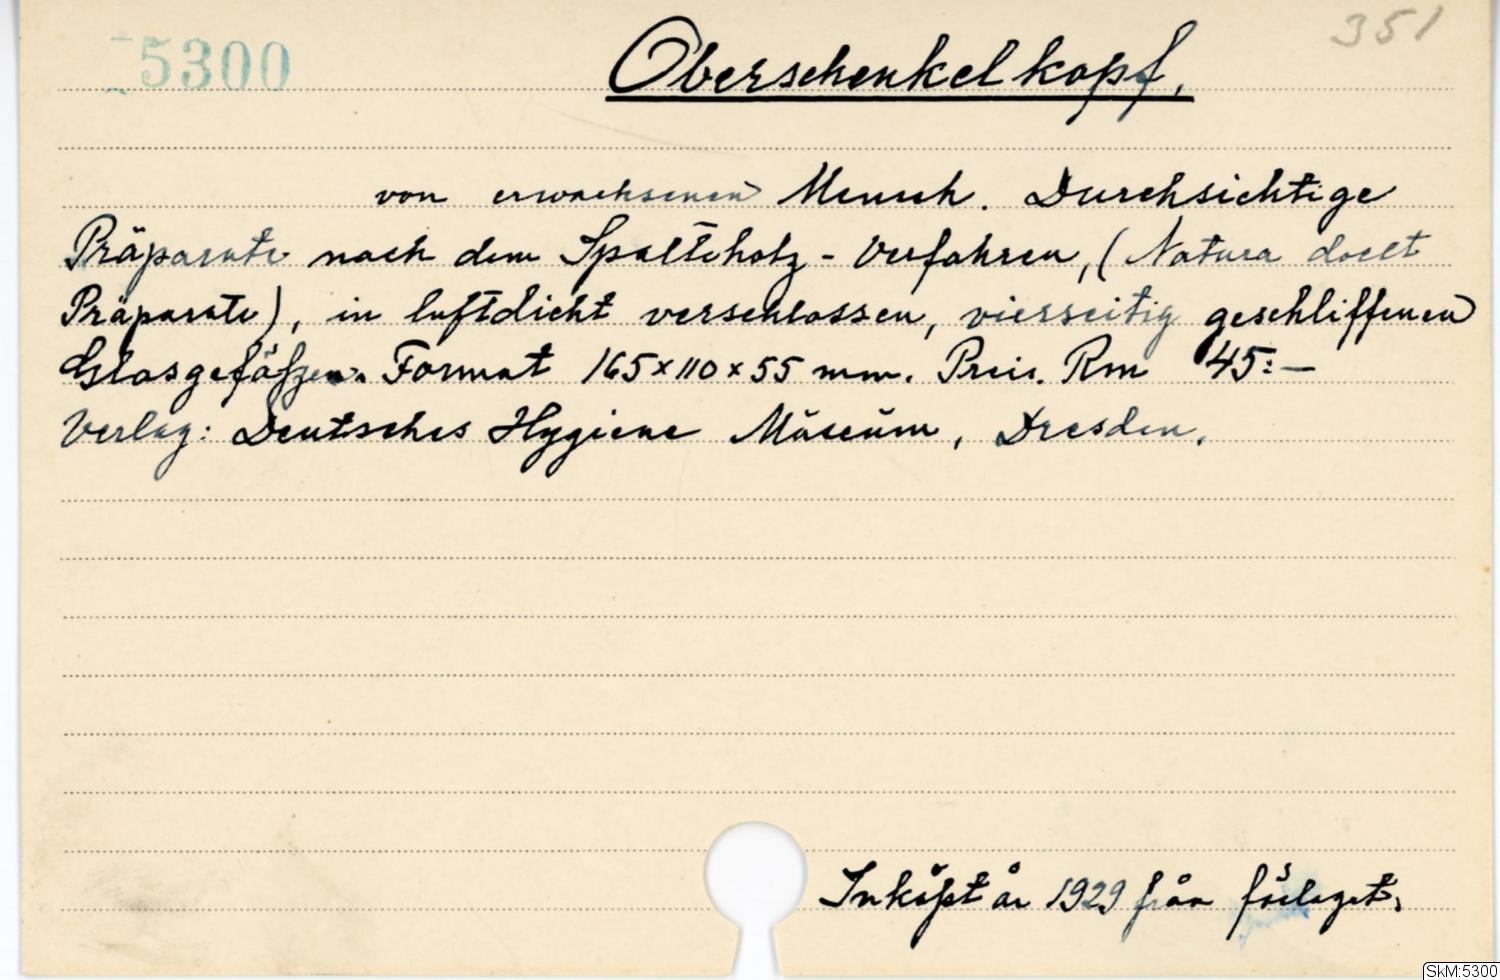 5300
351
Oberschenkelkopf.
von erwachsenen Mensch. Durchsichtige
Präparate nach dem Spalteholz-Verfahren, (Natura docet
Präparate), in luftdicht verschlossen, vierseitig geschliffenen
Glasgefäßen. Format 165x110x55 mm. Preis. Rm 45:—
Verlag: Deutsches Hygiene Museum, Dresden.
Inköpt år 1929 från förlaget.
SkM:5300